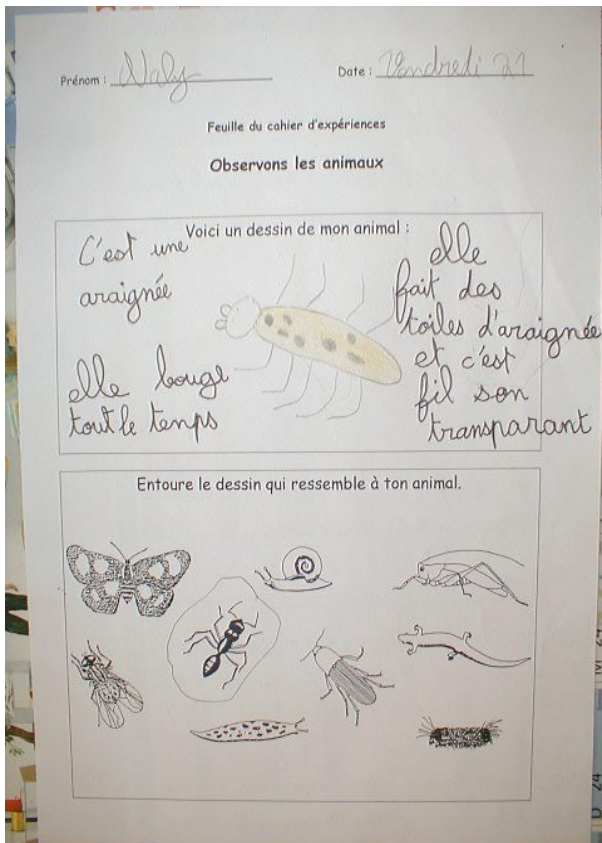 Prénom : Naly
Date : Vendredi 21
Feuille du cahier d'expériences
Observons les animaux
Voici un dessin de mon animal :
C'est une
araignée
elle bouge
tout le temps
elle
fait des
toiles d'araignée
et c'est
fil son
transparant
Entoure le dessin qui ressemble à ton animal.